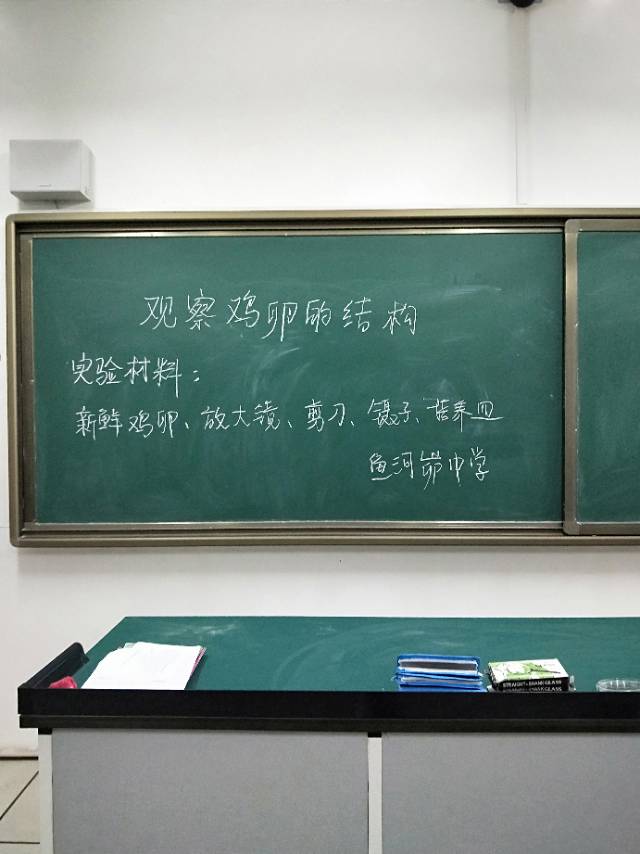 观察鸡卵的结构
实验材料：
新鲜鸡卵、放大镜、剪刀、镊子、培养皿
鱼河峁中学